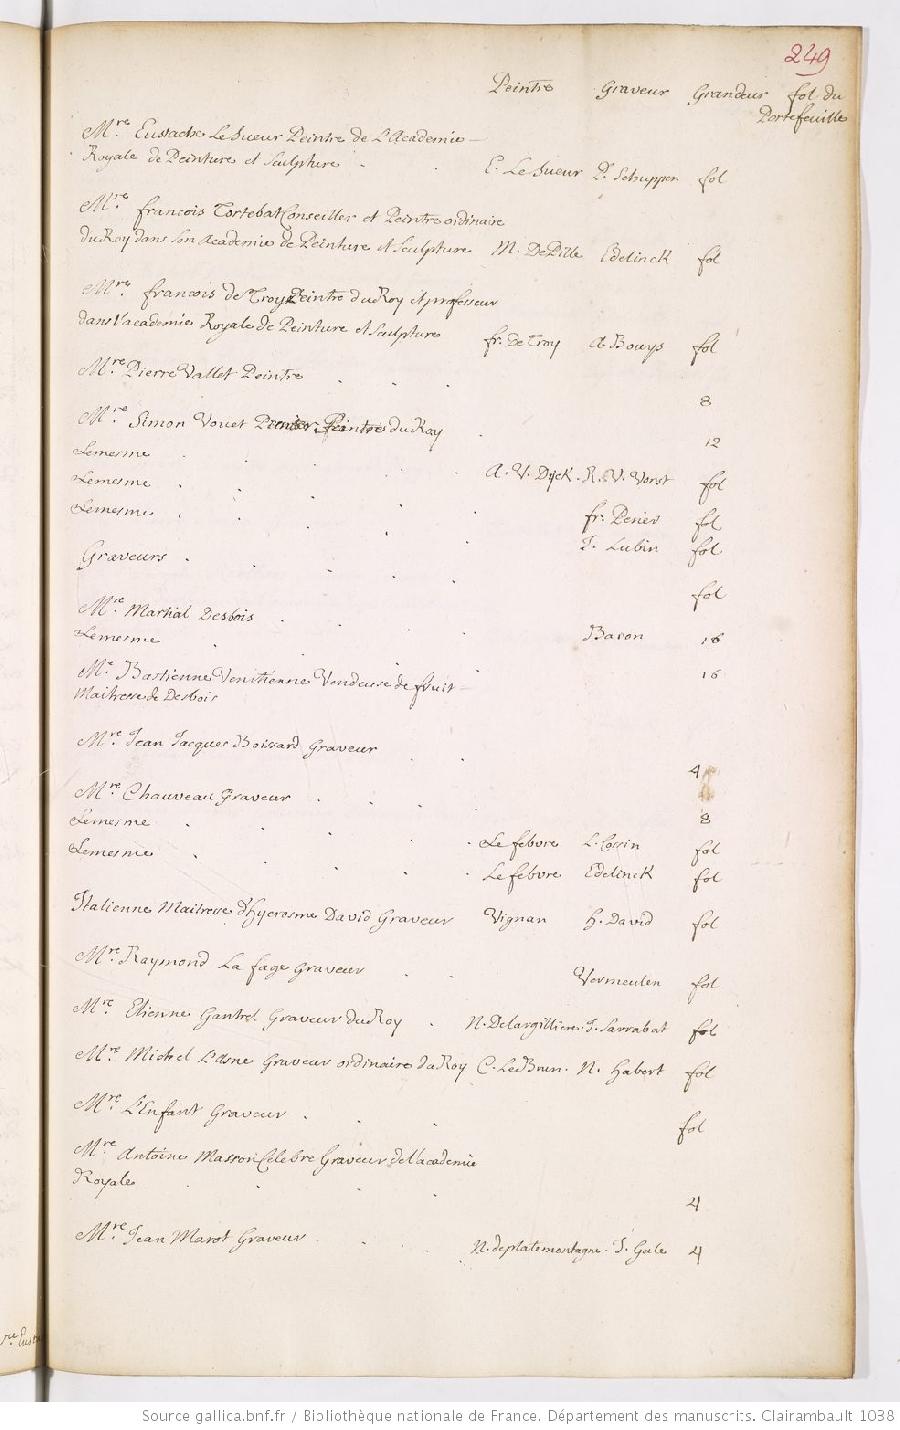 249
Peintre Graveur Grandeur fol. du
Portefeuille
Mre. Eustache Le Sueur Peintre de L'Academie
Royale de Peinture et Sculpture . . E. Le Sueur P. Schuppen fol
Mre. francois Tortebat Conseiller et Peintre ordinaire
du Roy dans son Academie de Peinture et Sculpture M. De Pille Edelinck fol
Mre. francois de Troy Peintre du Roy et professeur
dans l'academie Royale de Peinture et Sculpture fr. de Troy A. Bouys fol
Mre. Pierre Vallet Peintre . . . 8
Mre. Simon Vouet Premier Peintre du Roy . 12
Lemesme . . . . A. V. Dyck . R. V. Vorst fol
Lemesme . . . . . fr. Perier fol
Lemesme . . . . . J. Lubin fol
Graveurs . . . . . fol
Mre. Martial Desbois . . . Baron 16
Lemesme . . . . 16
Me. Bastienne Venitienne Vendeuse de fruit
Maitresse de Desbois
Mre. Jean Jacques Boissard Graveur . . 4
Mre. Chauveau Graveur . . . 8
Lemesme . . . . . Le febvre L. Cossin fol
Lemesme . . . . Le febvre Edelinck fol
Italienne Maitresse d'hyerosme David Graveur Vignan H. David fol
Mre. Raymond La fage Graveur . . Vermeulen fol
Mre. Etienne Gantrel Graveur du Roy . N. Delargilliere J. Sarrabat fol
Mre. Michel L'asne Graveur ordinaire du Roy C. Le Brun . N. Habert fol
Mre. L'Enfant Graveur . . . fol
Mre. Antoine Masson Celebre Graveur de l'academie
Royale . . . . 4
Mre. Jean Marot Graveur . . . N. de platemontagne . J. Gole 4
re Eus
Source gallica.bnf.fr / Bibliothèque nationale de France. Département des manuscrits. Clairambault 1038